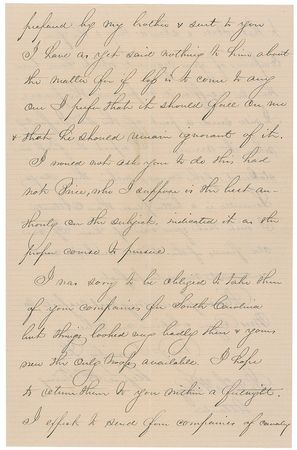 prepared by my brother & sent to you
I have as yet said nothing to him about
the matter for if loss is to come to any
one I prefer that it should fall on me
& that he should remain ignorant of it.
I would not ask you to do this, had
not Price, who I suppose is the best au-
thority on the subject, indicated it as the
proper course to pursue.
I was sorry to be obliged to take three
of your companies for South Carolina
but things looked very badly there & yours
were the only troops available. I hope
to return them to you within a fortnight.
I expect to send four companies of cavalry